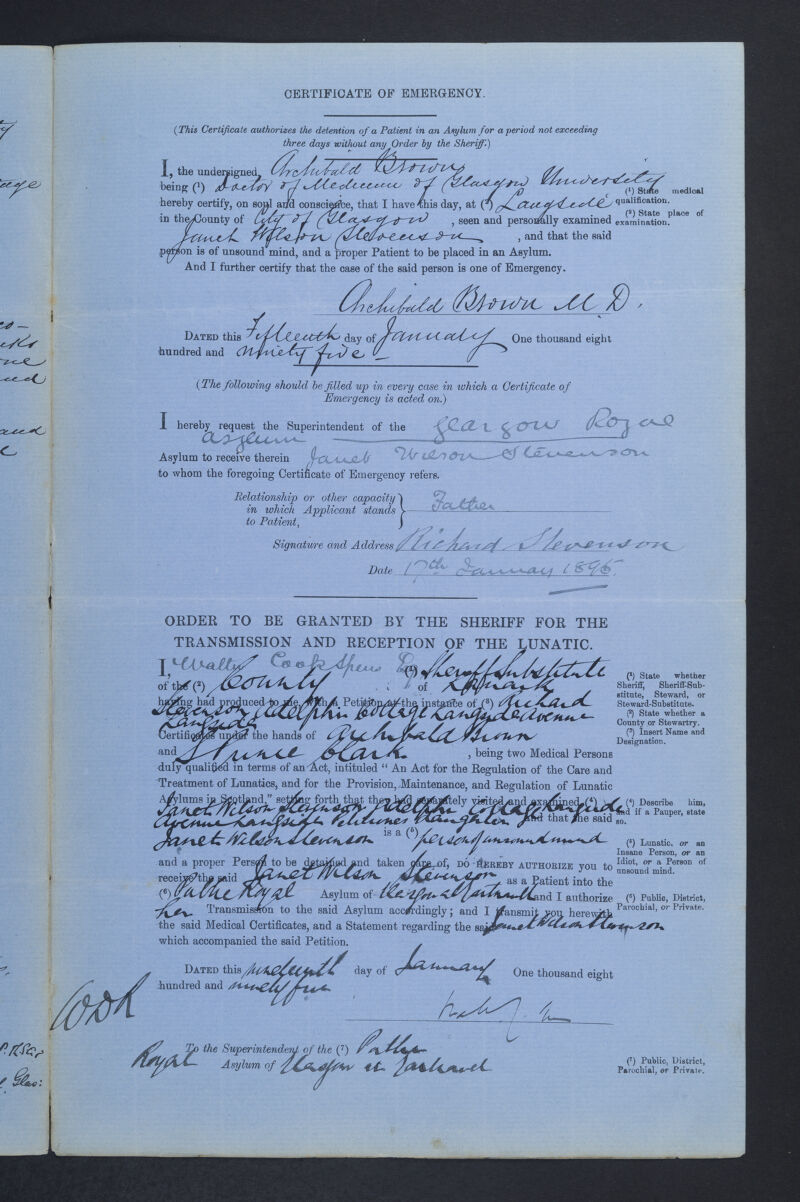 CERTIFICATE OF EMERGENCY.
(This Certificate authorizes the detention of a Patient in an Asylum for a period not exceeding
three days without any Order by the Sheriff.)
I, the undersigned, Archibald Brown
being (¹) Doctor of Medicine of Glasgow University
hereby certify, on soul and conscience, that I have this day, at (²) Langside
in the County of City of Glasgow , seen and personally examined
Janet Wilson Stevenson , and that the said
person is of unsound mind, and a proper Patient to be placed in an Asylum.
And I further certify that the case of the said person is one of Emergency.
(¹) State medical
qualification.
(²) State place of
examination.
Archibald Brown M.D.
DATED this Fifteenth day of January One thousand eight
hundred and ninety five
(The following should be filled up in every case in which a Certificate of
Emergency is acted on.)
I hereby request the Superintendent of the Glasgow Royal
Asylum
Asylum to receive therein Janet Wilson Stevenson
to whom the foregoing Certificate of Emergency refers.
Relationship or other capacity
in which Applicant stands
to Patient,
Father
Signature and Address Richard Stevenson
Date 17th January 1895.
ORDER TO BE GRANTED BY THE SHERIFF FOR THE
TRANSMISSION AND RECEPTION OF THE LUNATIC.
I, Walter Cook Spens (¹) Sheriff Substitute
of the (²) County of Lanark
having had produced to me, with a Petition at the instance of (³) Richard
Stevenson Adelphi Cottage Langside Avenue
Langside
Certificates under the hands of Archibald Brown
and Prince Clark , being two Medical Persons
duly qualified in terms of an Act, intituled “ An Act for the Regulation of the Care and
Treatment of Lunatics, and for the Provision, Maintenance, and Regulation of Lunatic
Asylums in Scotland,” setting forth that they had separately visited and examined (⁴)
Janet Wilson Stevenson Adelphi Cottage Langside
Avenue Langside Petitioner's Daughter and that the said
Janet Wilson Stevenson is a (⁵) person of unsound mind
and a proper Person to be detained and taken care of, DO HEREBY AUTHORIZE you to
receive the said Janet Wilson Stevenson as a Patient into the
(⁶) Public Royal Asylum of Glasgow at Gartnavel and I authorize
her Transmission to the said Asylum accordingly; and I transmit you herewith
the said Medical Certificates, and a Statement regarding the said Janet Wilson Stevenson
which accompanied the said Petition.
(¹) State whether
Sheriff, Sheriff-Sub-
stitute, Steward, or
Steward-Substitute.
(²) State whether a
County or Stewartry.
(³) Insert Name and
Designation.
(⁴) Describe him,
and if a Pauper, state
so.
(⁵) Lunatic, or an
Insane Person, or an
Idiot, or a Person of
unsound mind.
(⁶) Public, District,
Parochial, or Private.
DATED this nineteenth day of January One thousand eight
hundred and ninety five
To the Superintendent of the (⁷) Public
Royal Asylum of Glasgow at Gartnavel
(⁷) Public, District,
Parochial, or Private.